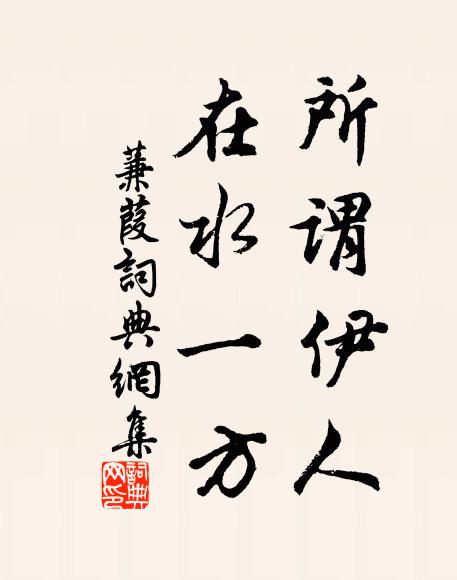 所谓伊人
在水一方
蒹葭詞典網集
詞典网印